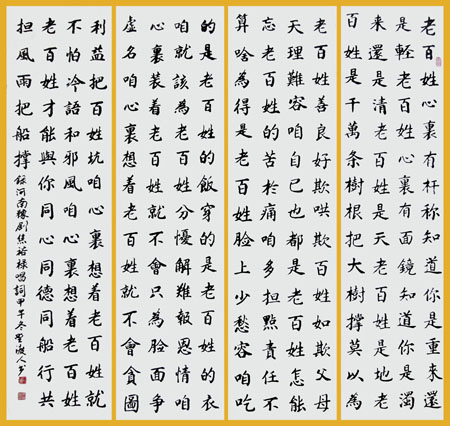 老百姓心裏有杆称知道你是重來還
是輕老百姓心裏有面鏡知道你是濁
來還是清老百姓是天老百姓是地老
百姓是千萬條樹根把大樹撐莫以為
老百姓善良好欺哄欺百姓如欺父母
天理難容咱自已也都是老百姓怎能
忘老百姓的苦於痛咱多担點責任不
算啥為得是老百姓臉上少愁容咱吃
的是老百姓的飯穿的是老百姓的衣
咱就該為老百姓分憂解難報恩情咱
心裏裝着老百姓就不會只為臉面爭
虛名咱心裏想着老百姓就不會貪圖
利益把百姓坑咱心裏想着老百姓就
不怕冷語和邪風咱心裏想着老百姓
老百姓才能與你同心同德同船行共
担風雨把船撐
錄河南豫劇焦裕祿唱詞甲午冬